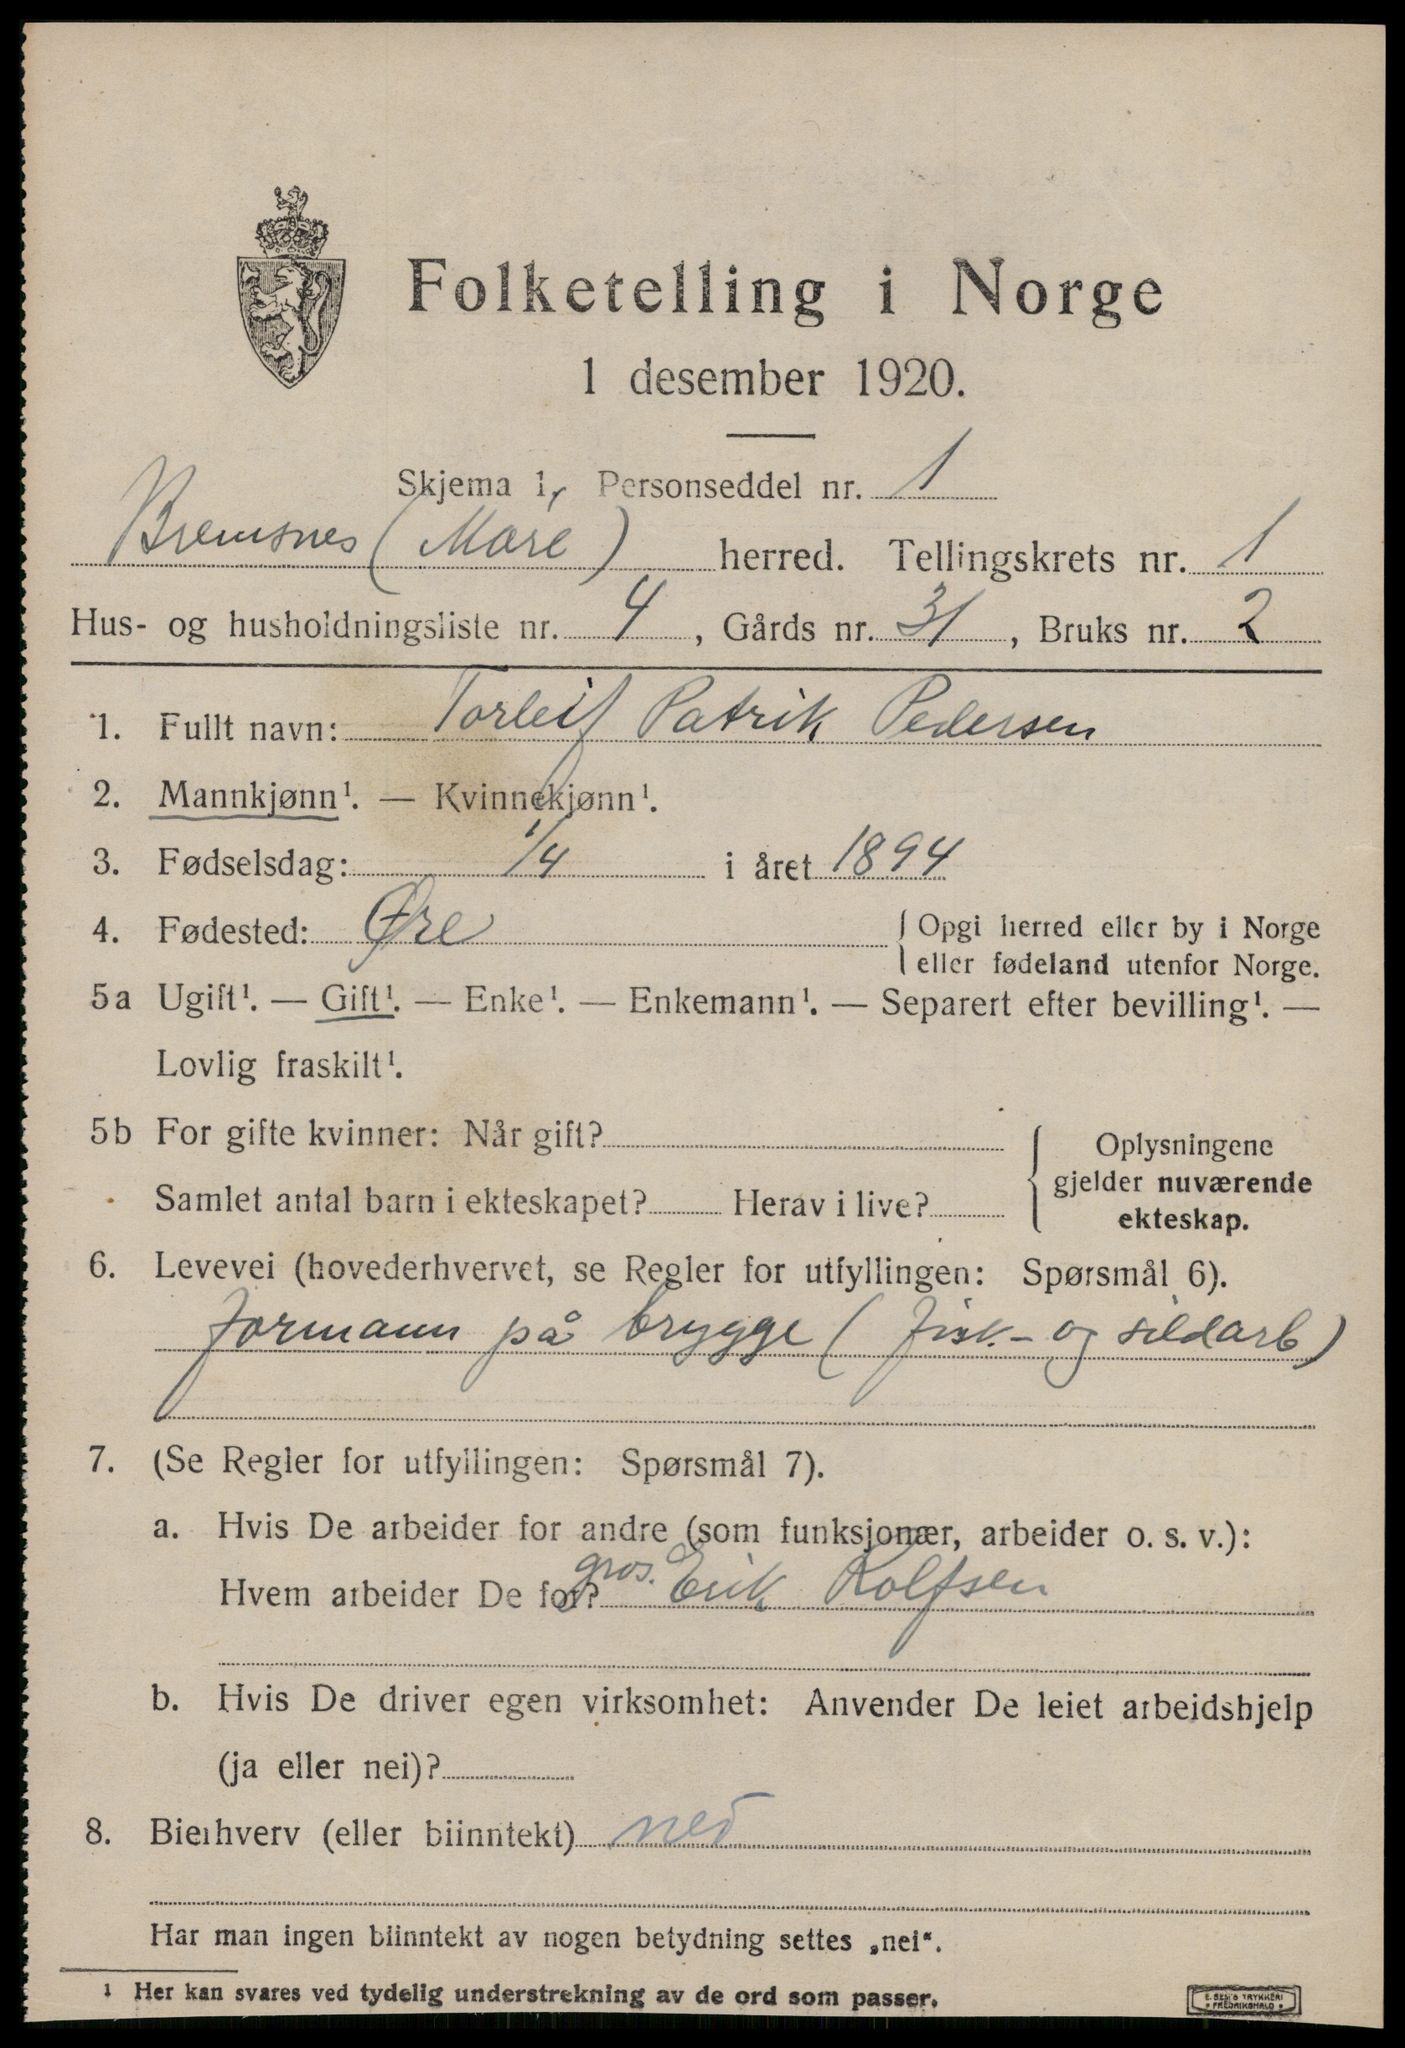 Folketelling i Norge
1 desember 1920.
Skjema 1, Personseddel nr. 1
Bremsnes (Møre) herred. Tellingskrets nr. 1
Hus- og husholdningsliste nr. 4, Gårds nr. 31, Bruks nr. 2
1. Fullt navn: Torleif Patrik Pedersen
2. Mannkjønn¹. — Kvinnekjønn¹.
3. Fødselsdag: 1/4 i året 1894
4. Fødested: Øre { Opgi herred eller by i Norge
eller fødeland utenfor Norge.
5a Ugift¹. — Gift¹. — Enke¹. — Enkemann¹. — Separert efter bevilling¹. —
Lovlig fraskilt¹.
5b For gifte kvinner: Når gift? { Oplysningene
gjelder nuværende
ekteskap.
Samlet antal barn i ekteskapet? Herav i live?
6. Levevei (hovederhvervet, se Regler for utfyllingen: Spørsmål 6).
formann på brygge (fisk- og sildarb)
7. (Se Regler for utfyllingen: Spørsmål 7).
a. Hvis De arbeider for andre (som funksjonær, arbeider o. s. v.):
Hvem arbeider De for? gros. Erik Rolfsen
b. Hvis De driver egen virksomhet: Anvender De leiet arbeidshjelp
(ja eller nei)?
8. Bierhverv (eller biinntekt) nei
Har man ingen biinntekt av nogen betydning settes „nei“.
¹ Her kan svares ved tydelig understrekning av de ord som passer.
E. SEM'S TRYKKERI
• FREDRIKSHALD •